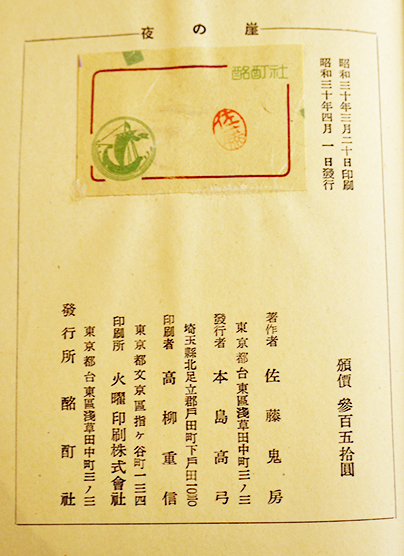 夜の崖
昭和三十年三月二十日印刷
昭和三十年四月一日發行
酩酊社
頒價 參百五拾圓
著作者 佐藤鬼房
東京都台東區淺草田中町三ノ三
發行者 本島高弓
埼玉縣北足立郡戸田町下戸田一〇三〇
印刷者 高柳重信
東京都文京區指ヶ谷町一三四
印刷所 火曜印刷株式會社
東京都台東區淺草田中町三ノ三
發行所 酩酊社